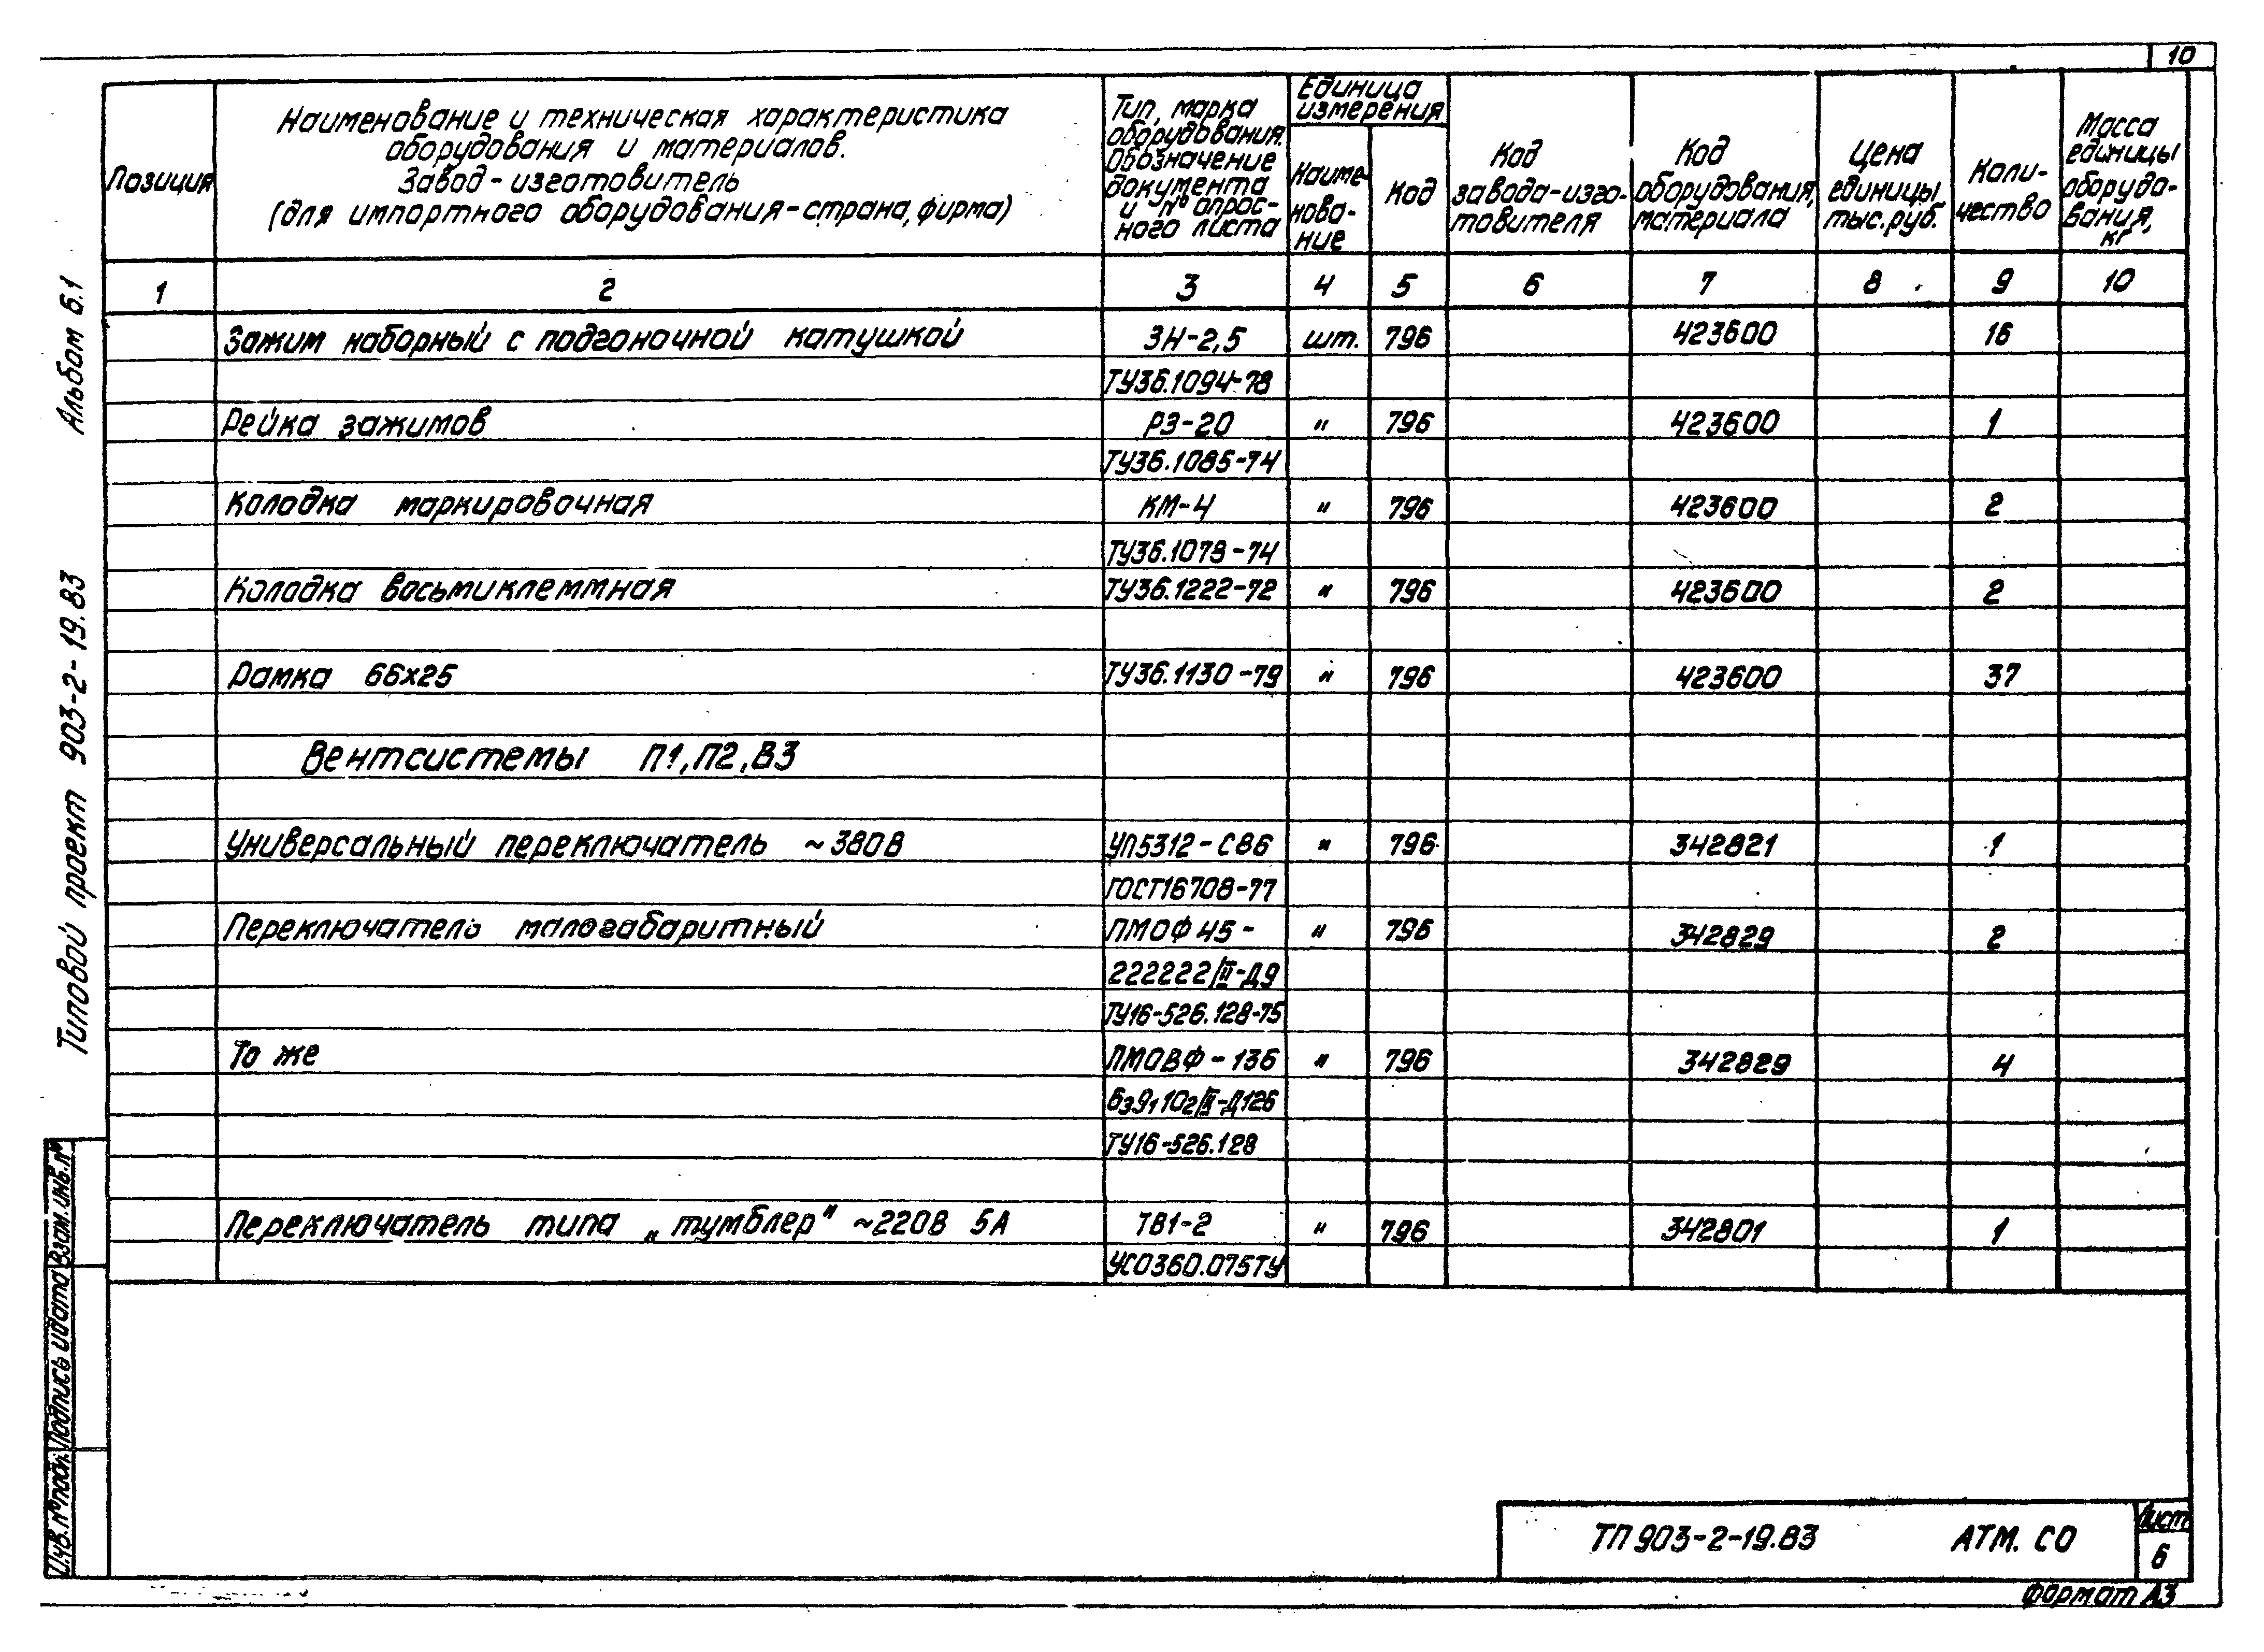 10
Позиция
Наименование и техническая характеристика
оборудования и материалов.
Завод-изготовитель
(для импортного оборудования-страна, фирма)
Тип, марка
оборудования.
Обозначение
документа
и № опрос-
ного листа
Единица
измерения
Наиме-
нова-
ние
Код
Код
завода-изго-
товителя
Код
оборудования,
материала
Цена
единицы,
тыс.руб.
Коли-
чество
Масса
единицы
оборудо-
вания,
кг
1 2 3 4 5 6 7 8 9 10
Зажим наборный с подгоночной катушкой ЗН-2,5 шт. 796 423600 16
ТУ36.1094-78
Рейка зажимов РЗ-20 " 796 423600 1
ТУ36.1085-74
Колодка маркировочная КМ-4 " 796 423600 2
ТУ36.1078-74
Колодка восьмиклеммная ТУ36.1222-72 " 796 423600 2
Рамка 66x25 ТУ36.1130-79 " 796 423600 37
Вентсистемы П1, П2, В3
Универсальный переключатель ~380В УП5312-С86 " 796 342821 1
ГОСТ16708-77
Переключатель малогабаритный ПМОФ45- " 796 342829 2
222222/II-Д9
ТУ16-526.128-75
То же ПМОВФ-136 " 796 342829 4
ТУ16-526.128
Переключатель типа „тумблер" ~220В 5А ТВ1-2 " 796 342801 1
УСО360.075ТУ
Альбом 6.1
Типовой проект 903-2-19.83
Взам.инв.№
Подпись и дата
Инв.№ подл.
ТП 903-2-19.83 АТМ. СО
Лист
6
Формат А3